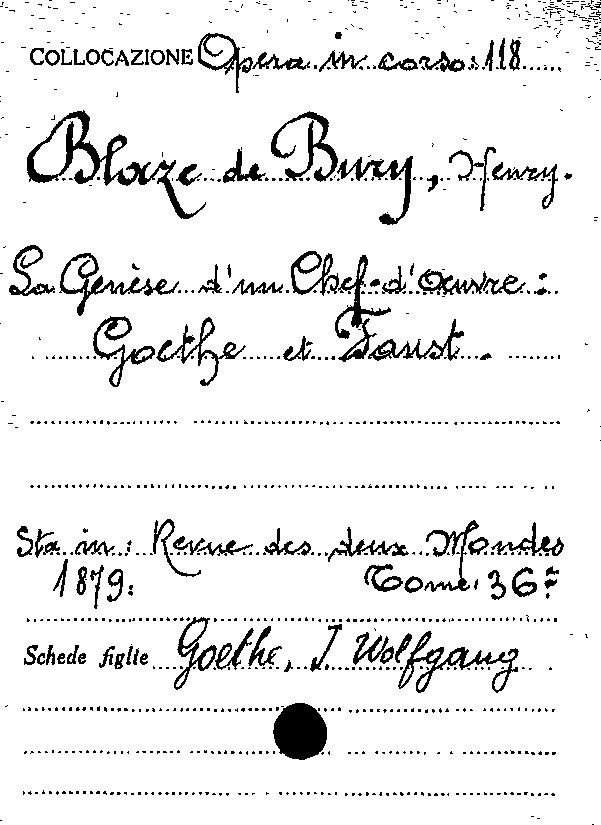 COLLOCAZIONE Opera in corso: 118
Blaze de Bury, Henry.
La Genèse d'un Chef-d'œuvre:
Goethe et Faust.
Sta in: Revue des deux Mondes
1879: Tome: 36º
Schede figlie Goethe, J. Wolfgang